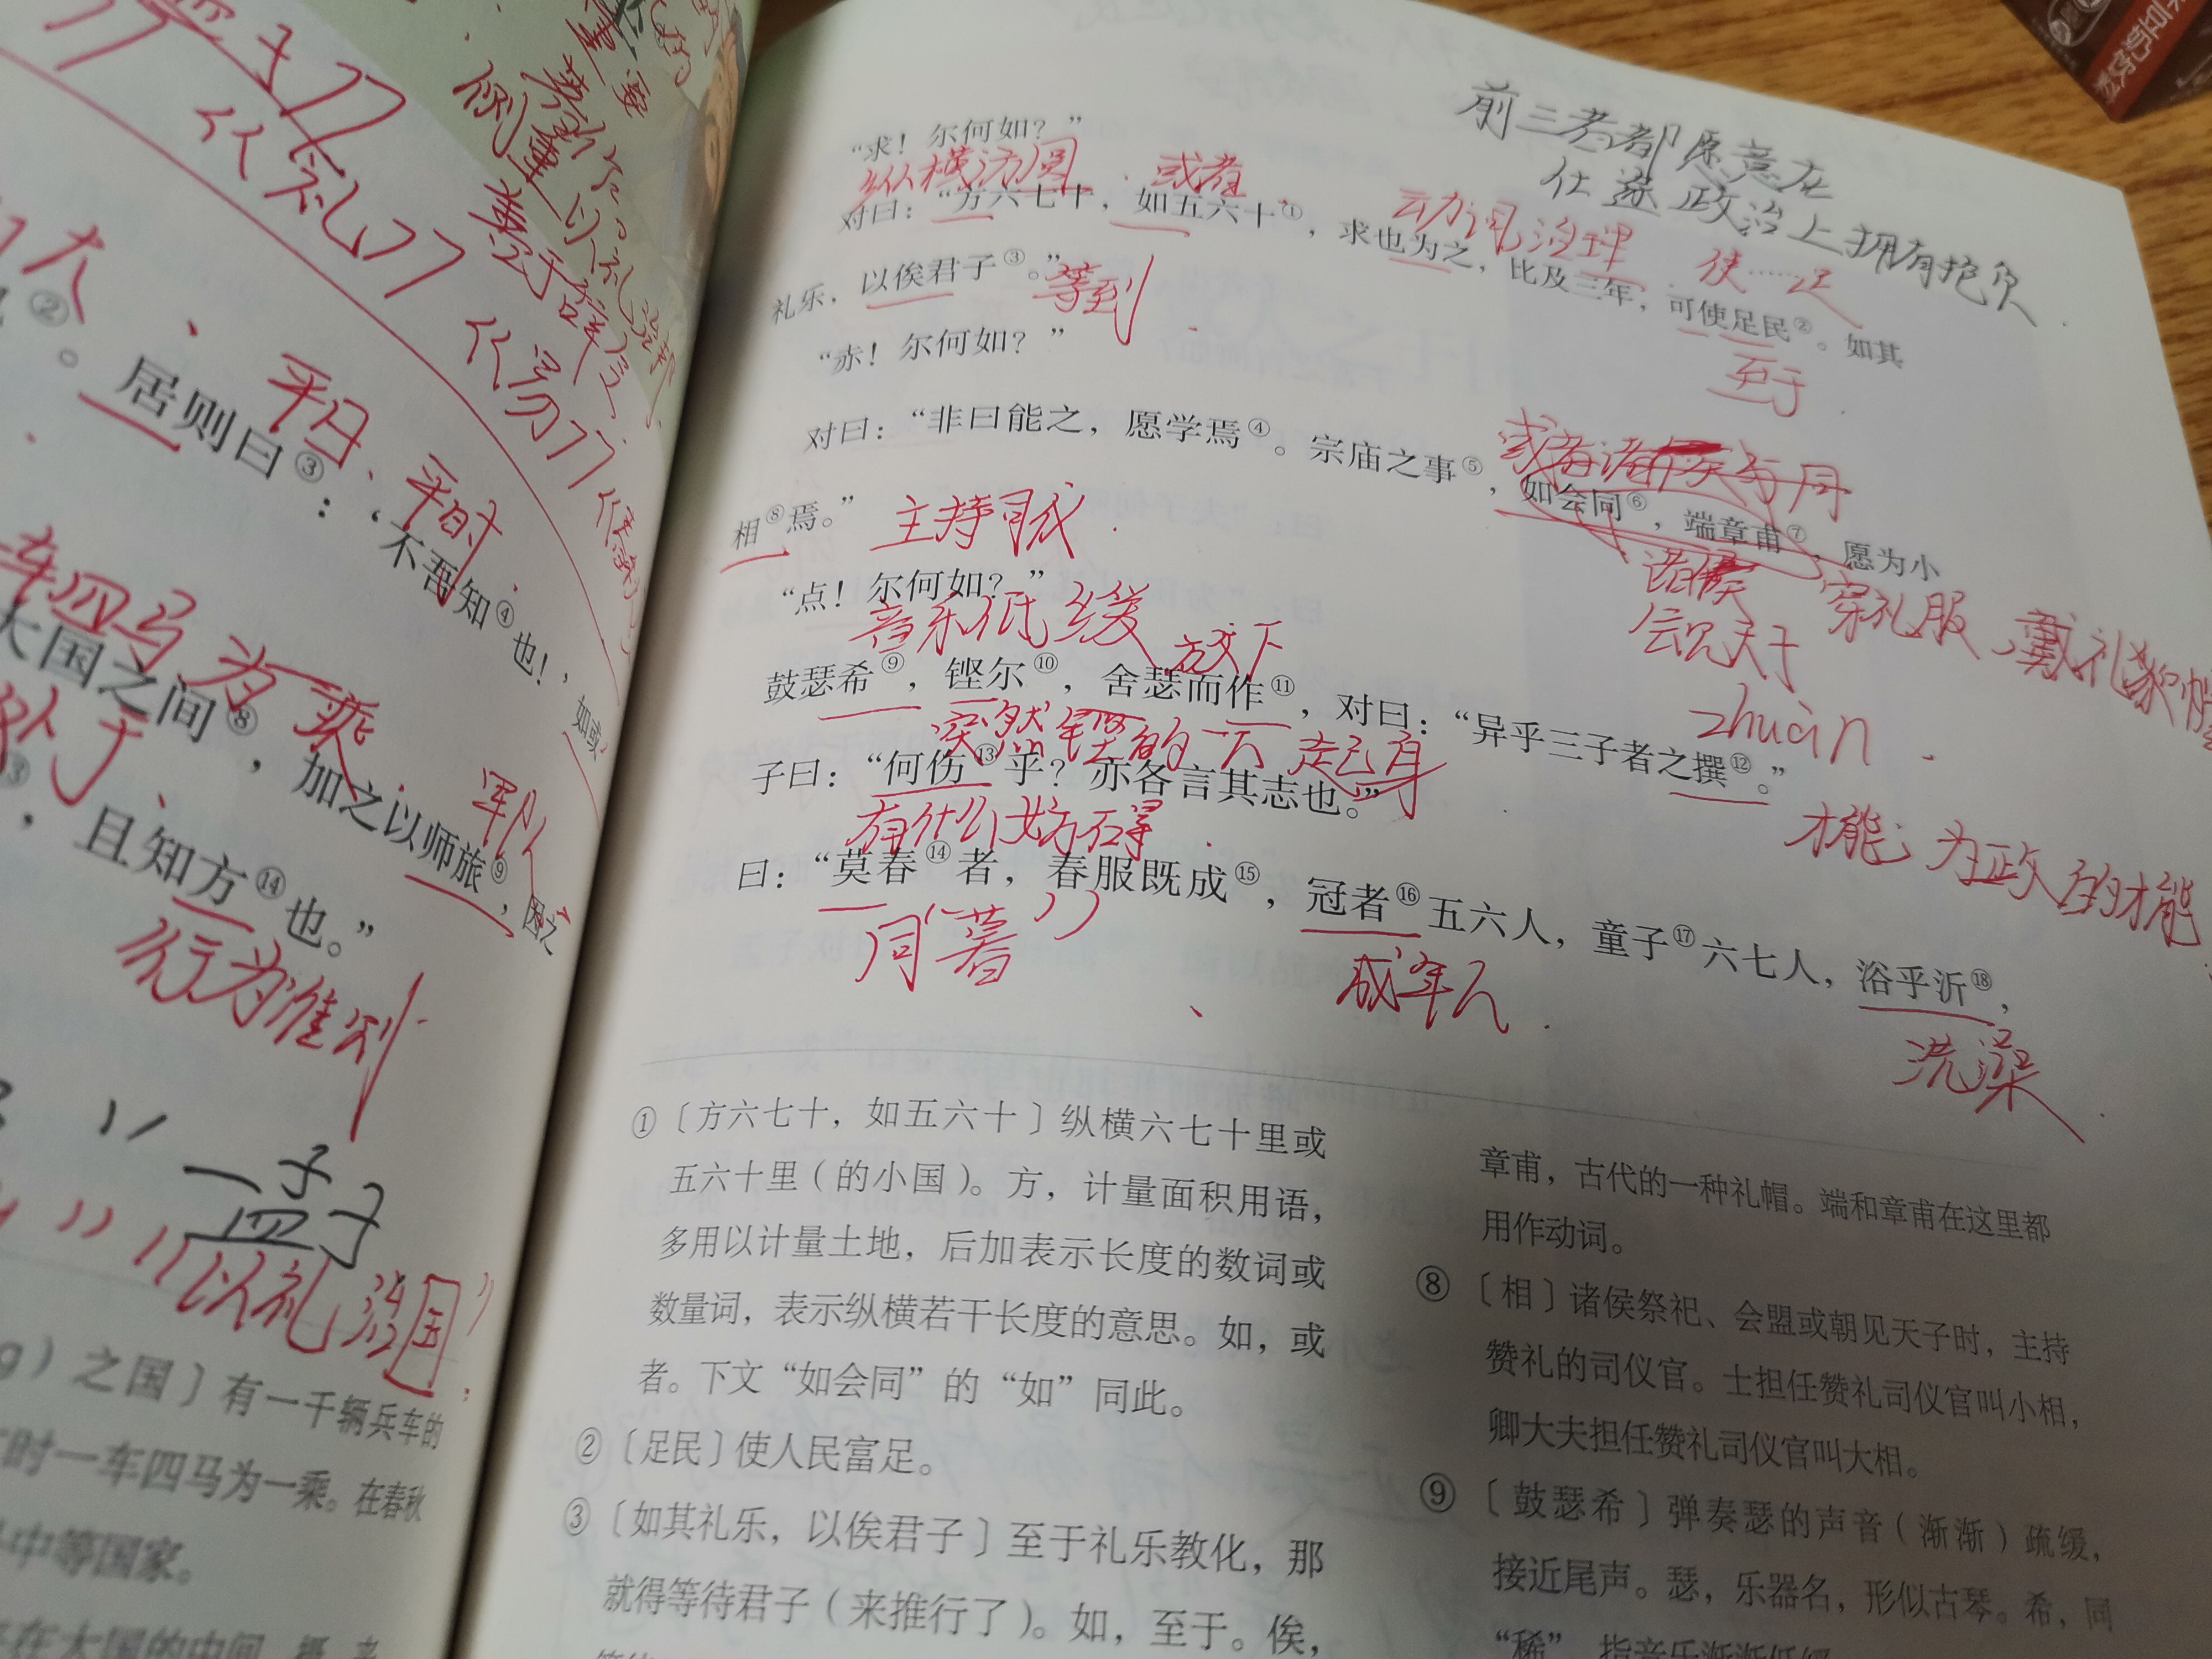 仁礼
仁易
平日、平时
②。居则曰③：‘不吾知④也！’如或
车四马为一乘
大国之间⑧，加之以师旅⑨，因之
军队
，且知方⑭也。”
行为准则
孟子
以礼治国
）之国〕有一千辆兵车的
时一车四马为一乘。在春秋
中等国家。
在大国的中间
前三者都愿意在
仕途政治上拥有抱负
“求！尔何如？”
纵横方圆 或者 动词治理 使……足
对曰：“方六七十，如五六十①，求也为之，比及三年，可使足民②。如其
至于
礼乐，以俟君子③。”
等到
“赤！尔何如？”
或者诸侯
对曰：“非曰能之，愿学焉④。宗庙之事⑤，如会同⑥，端章甫⑦，愿为小
相⑧焉。”
主持司仪
诸侯
穿礼服，戴礼帽
“点！尔何如？”
音乐低缓 放下
zhuàn
鼓瑟希⑨，铿尔⑩，舍瑟而作⑪，对曰：“异乎三子者之撰⑫。”
突然铿的一下 起身
才能：为政的才能
子曰：“何伤⑬乎？亦各言其志也。”
有什么妨碍
曰：“莫春⑭者，春服既成⑮，冠者⑯五六人，童子⑰六七人，浴乎沂⑱，
同“暮”
成年人
洗澡
①〔方六七十，如五六十〕纵横六七十里或
五六十里（的小国）。方，计量面积用语，
多用以计量土地，后加表示长度的数词或
数量词，表示纵横若干长度的意思。如，或
者。下文“如会同”的“如”同此。
②〔足民〕使人民富足。
③〔如其礼乐，以俟君子〕至于礼乐教化，那
就得等待君子（来推行了）。如，至于。俟，
章甫，古代的一种礼帽。端和章甫在这里都
用作动词。
⑧〔相〕诸侯祭祀、会盟或朝见天子时，主持
赞礼的司仪官。士担任赞礼司仪官叫小相，
卿大夫担任赞礼司仪官叫大相。
⑨〔鼓瑟希〕弹奏瑟的声音（渐渐）疏缓，
接近尾声。瑟，乐器名，形似古琴。希，同
“稀”，指音乐渐渐低缓